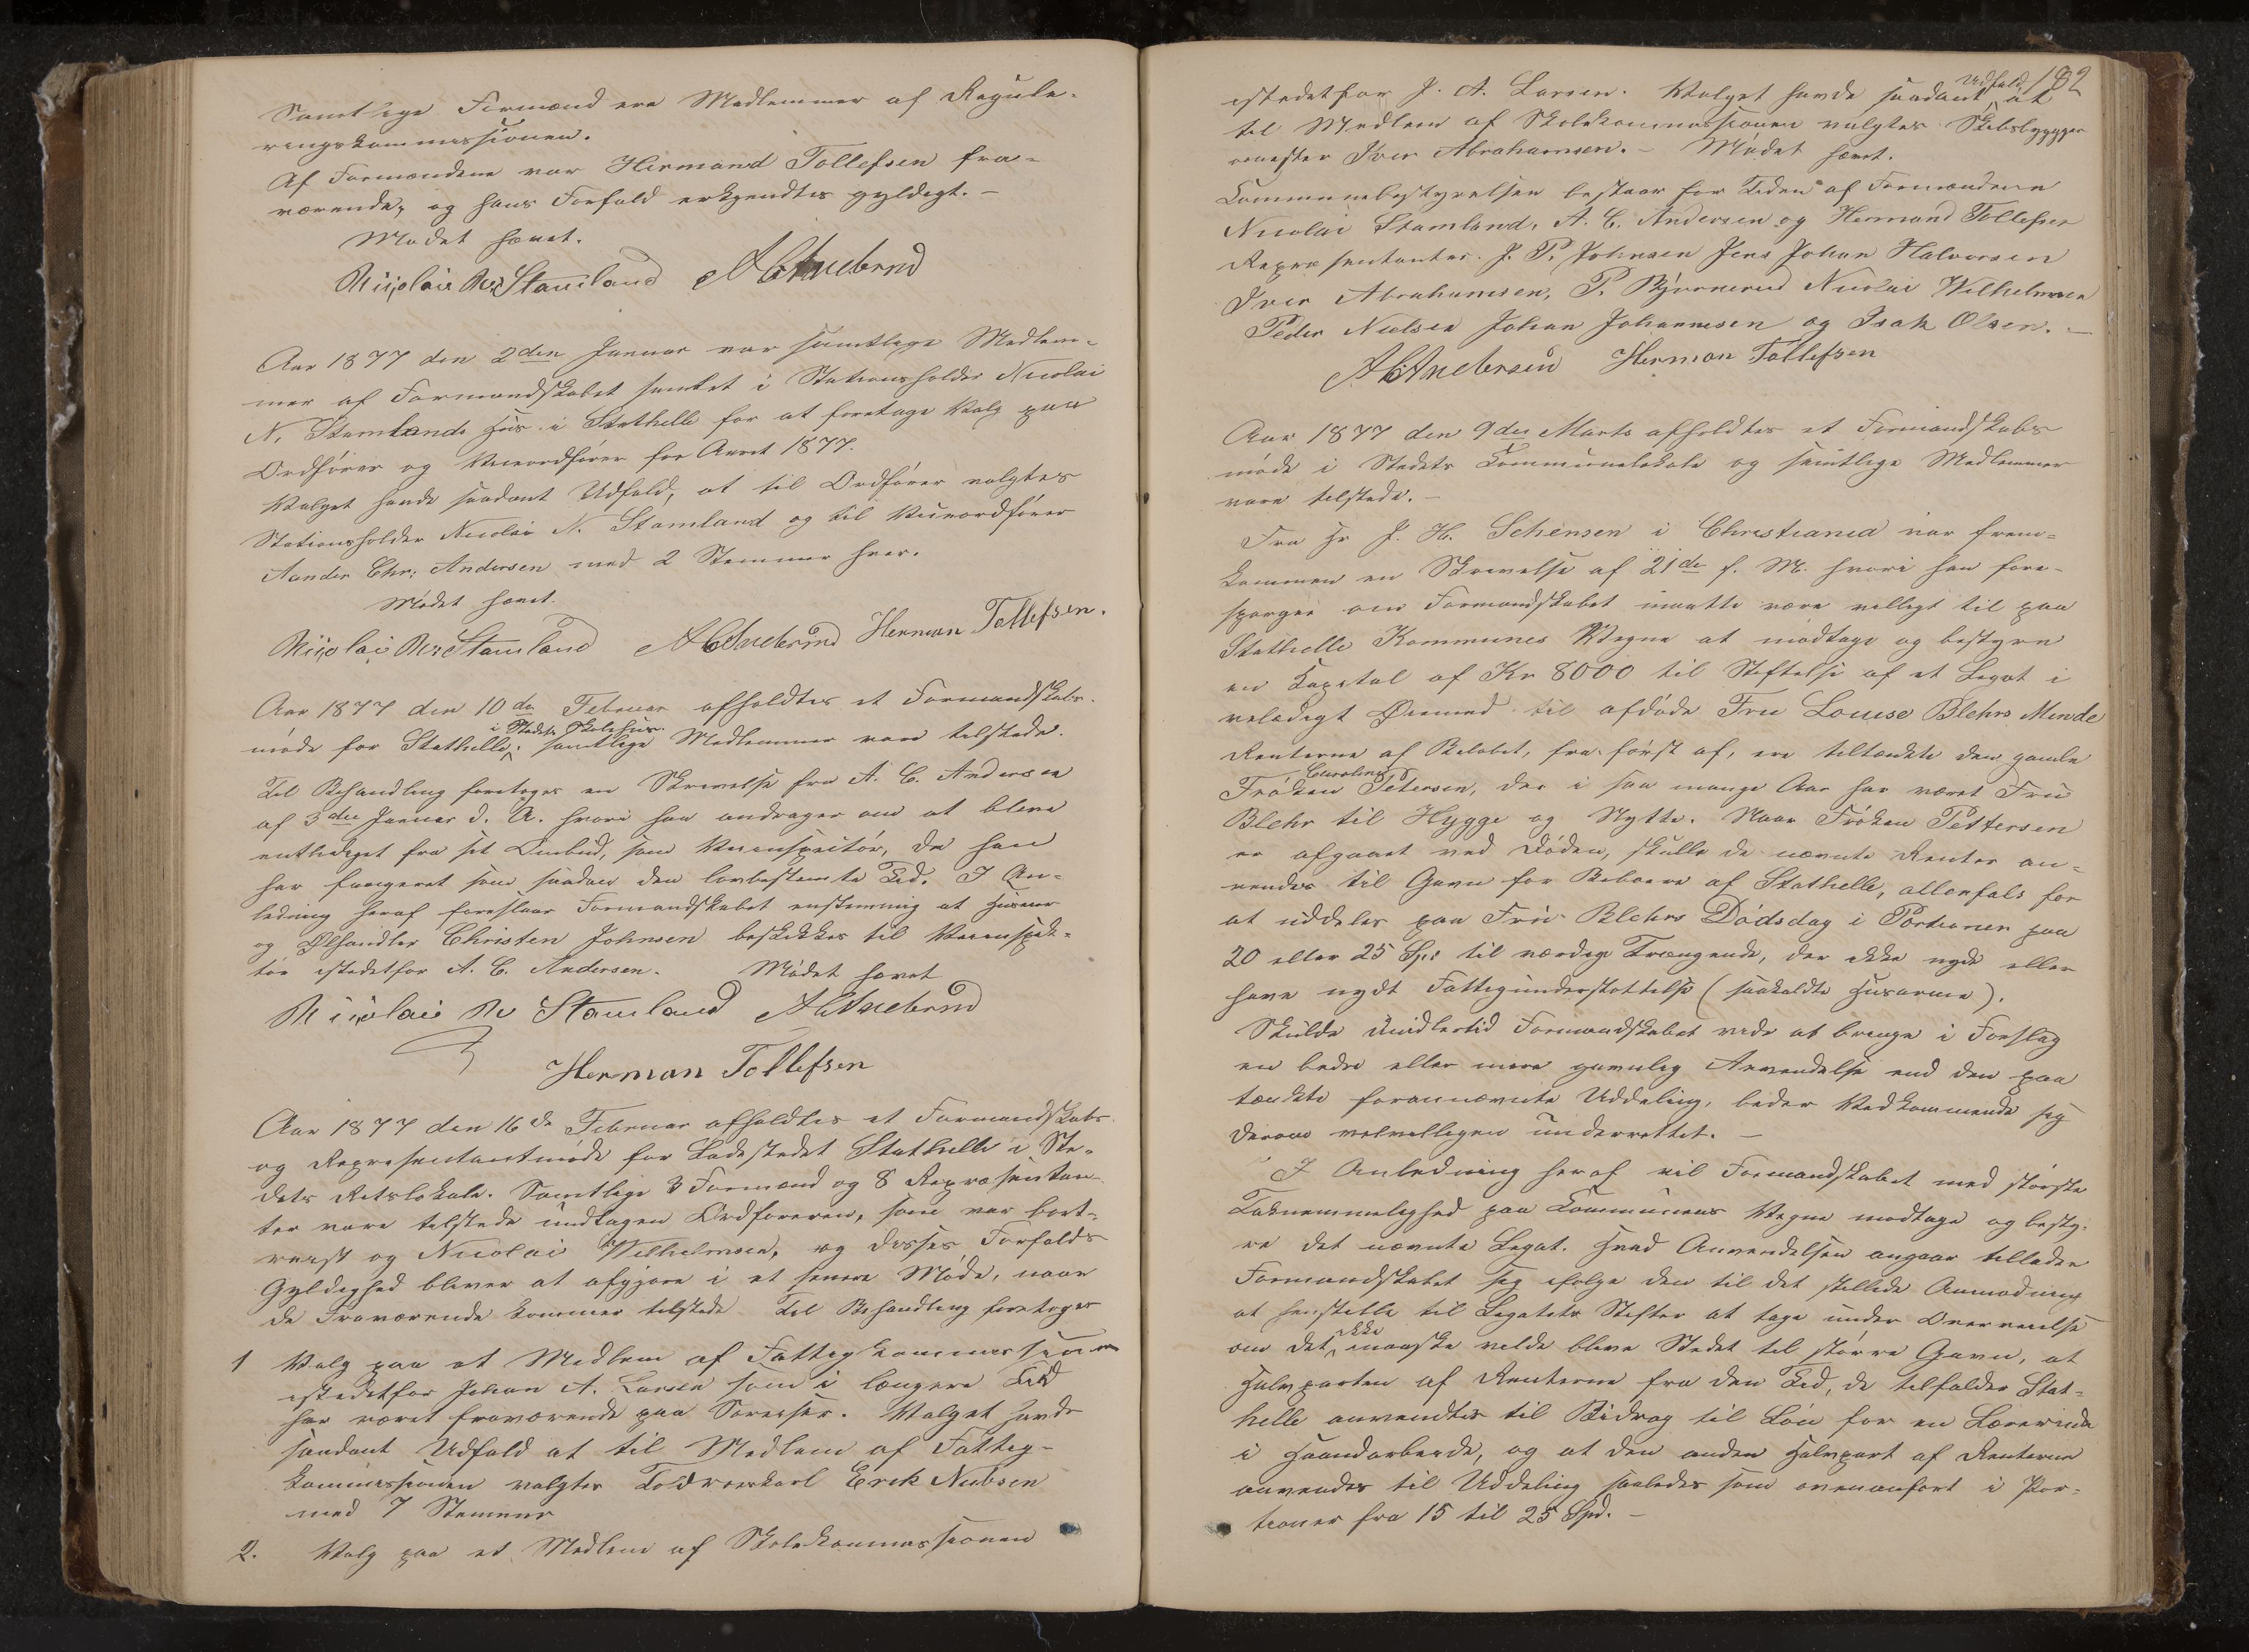 Samtlige Formænd ere Medlemmer af Regule-
ringskommissionen.
Af Formændene var Hermand Tollefsen fra-
værende, og hans Forfald erkjendtes gyldigt. –
Mødet hævet.
Nicolai N. Stamland A C Andersen
Aar 1877 den 2den Januar var samtlige Medlem-
mer af Formandskabet samlet i Stationsholder Nicolai
N. Stamlands Hus i Stathelle for at foretage Valg paa
Ordfører og Viceordfører for Aaret 1877.
Valget havde saadant Udfald, at til Ordfører valgtes
Stationsholder Nicolai N. Stamland og til Viceordfører
Aander Chr: Andersen med 2 Stemmer hver.
Mødet hævet.
Nicolai N. Stamland A C Andersen Herman Tollefsen.
Aar 1877 den 10de Februar afholdtes et Formandskabs-
i Stedets Skolehus.
møde for Stathelle. samtlige Medlemmer vare tilstede.
Til Behandling foretoges en Skrivelse fra A. C. Andersen
af 3die Januar d. A. hvori han andrager om at blive
entlediget fra sit Ombud, som Vrerinspektør, da han
har fungeret som saadan den lovbestemte Tid. I An-
ledning heraf foreslaar Formandskabet enstemmig at Huseier
og Ølhandler Christen Johnsen beskikkes til
tør istedetfor A. C. Andersen. Mødet hævet
Nicolai N. Stamland A C Andersen
Herman Tollefsen
Aar 1877 den 16de Februar afholdtes et Formandskabs
og Repræsentantmøde for Ladestedet Stathelle i Ste-
dets Retslokale. Samtlige 3 Formænd og 8 Repræsentan-
ter vare tilstede undtagen Ordføreren, som var bort-
reist og Nicolai Wilhelmsen, og disses Forfalds
Gyldighed bliver at afgjøre i et senere Møde, naar
de Fraværende kommer tilstede Til Behandling foretoges
1 Valg paa et Medlem af Fattigkommissionen
istedetfor Johan A. Larsen som i længere Tid
har været fraværende paa Søreiser. Valget havde
saadant Udfald at til Medlem af Fattig-
kommissionen valgtes Erik Nielsen
med 7 Stemmer
2. Valg paa et Medlem af Skolekommissionen
182
Udfald
istedetfor J. A. Larsen. Valget havde saadant at
til Medlem af Skolekommissionen valgtes Skibsbygger
mester Iver Abrahamsen. – Mødet hævet.
Kommunebestyrelsen bestaar for Tiden af Formændene
Nicolai Stamland, A. C. Andersen og Hermand Tollefsen
Repræsentanter. J. P. Johnsen Jens Johan Halvorsen
Iver Abrahamsen, P. Bjørnerud Nicolai Wilhelmsen
Peder Nielsen Johan Johannesen og Isak Olsen. –
A C Andersen Herman Tollefsen
Aar 1877 den 9de Marts afholdtes et Formandskabs
møde i Stedets Kommunelokale og samtlige Medlemmer
vare tilstede. –
Fra Hr J. H. Schensen i Christiania var frem-
kommen en Skrivelse af 21de f. M. hvori han fore-
spørger om Formandskabet maatte være villigt til paa
Stathelle Kommunes Vegne at modtage og bestyre
en Kapital af Kr 8000 til Stiftelse af et Legat i
veldædigt Øiemed til afdøde Fru Louise Blehrs Minde
Renterne af Beløbet, fra først af, ere tiltænkte den gamle
Caroline
Frøken Petersen, der i saa mange Aar har været Fru
Blehr til Hygge og Nytte. Naar Frøken Pettersen
er afgaaet ved Døden, skulle de nævnte Renter an-
vendes til Gavn for Beboere af Stathelle, allenfals for
at uddeles paa Fru Blehrs Dødsdag i Portioner paa
20 eller 25 Spd til værdige Trængende, der ikke nyde eller
have nydt Fattigunderstøttelse (saakaldte Husarme).
Skulde imidlertid Formandskabet vide at bringe i Forslag
en bedre eller mere gavnlig Anvendelse end den paa
tænkte forannævnte Uddeling, beder Vedkommende sig
derom velvilligen underrettet. –
I Anledning heraf vil Formandskabet med største
Taknemmelighed paa Kommunens Vegne modtage og besty-
re det nævnte Legat. Hvad Anvendelsen angaar tillader
Formandskabet sig ifølge den til det stillede Anmodning
at henstille til Legatets Stifter at tage under Overveielse
ikke
om det maaske vilde blive Stedet til større Gavn, at
Halvparten af Renterne fra den Tid, de tilfalder Stat-
helle anvendtes til Bidrag til Løn for en Lærerinde
i Haandarbeide, og at den anden Halvpart af Renterne
anvendes til Uddeling saaledes som ovenanført i Por-
tioner fra 15 til 25 Spd. –